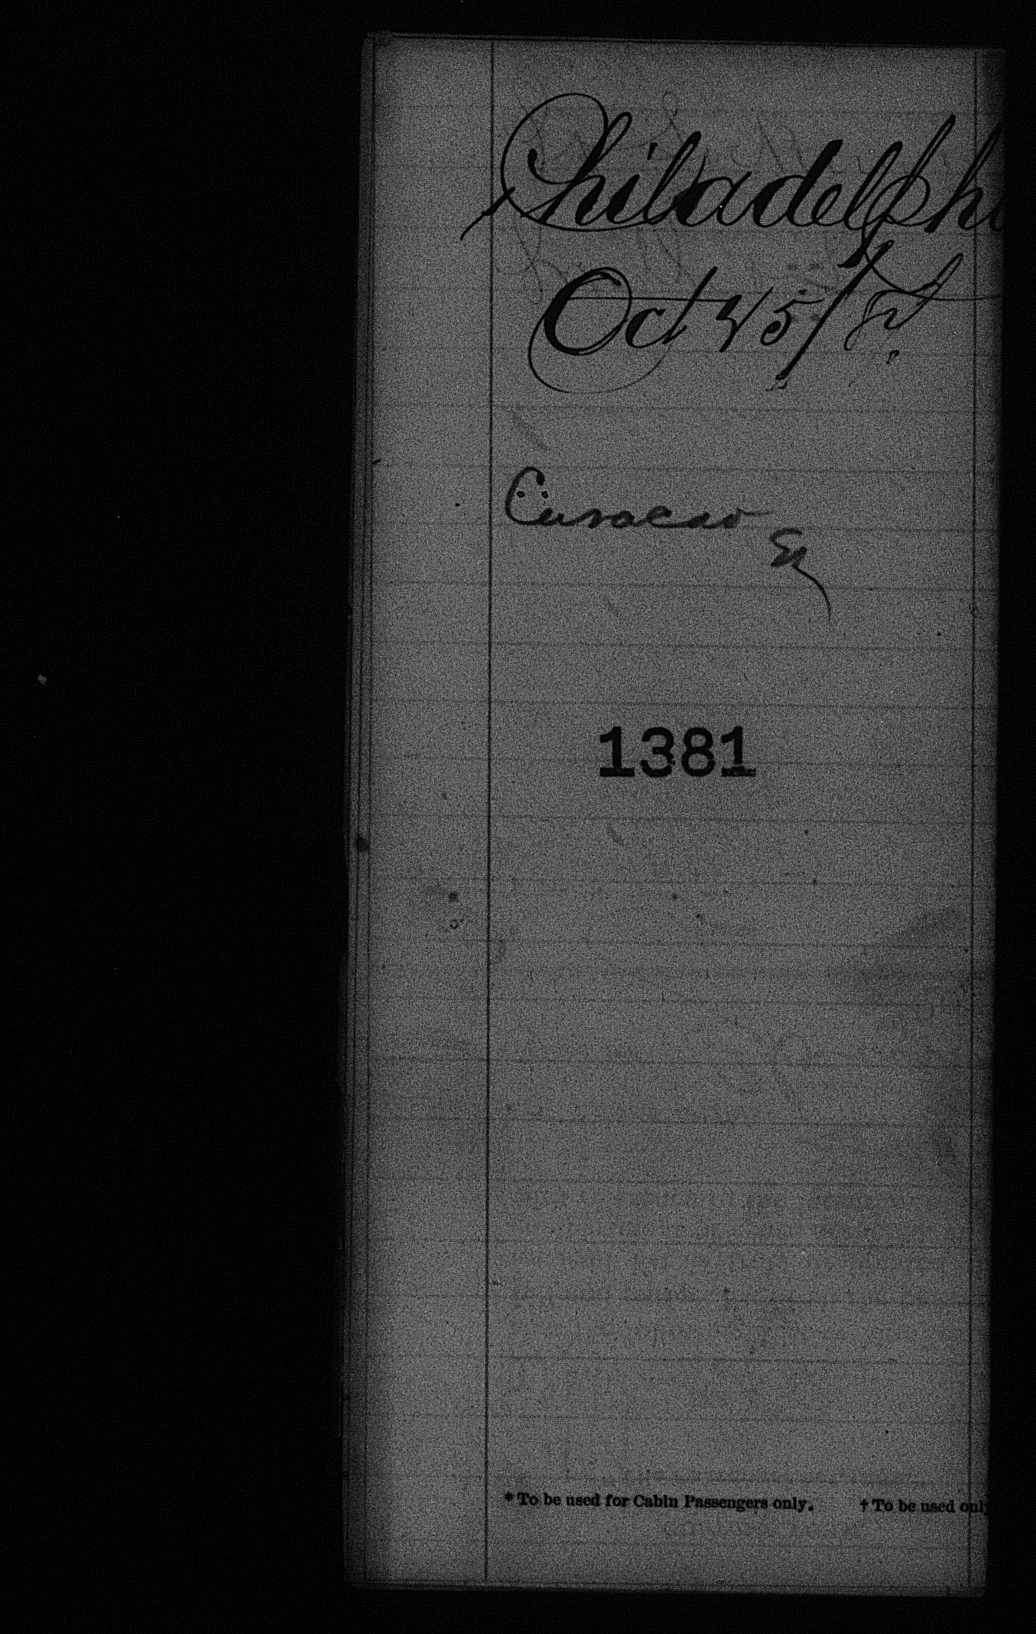 Philadelphi
Oct
Curacao
1381
* To be used for Cabin Passengers only. † To be used only